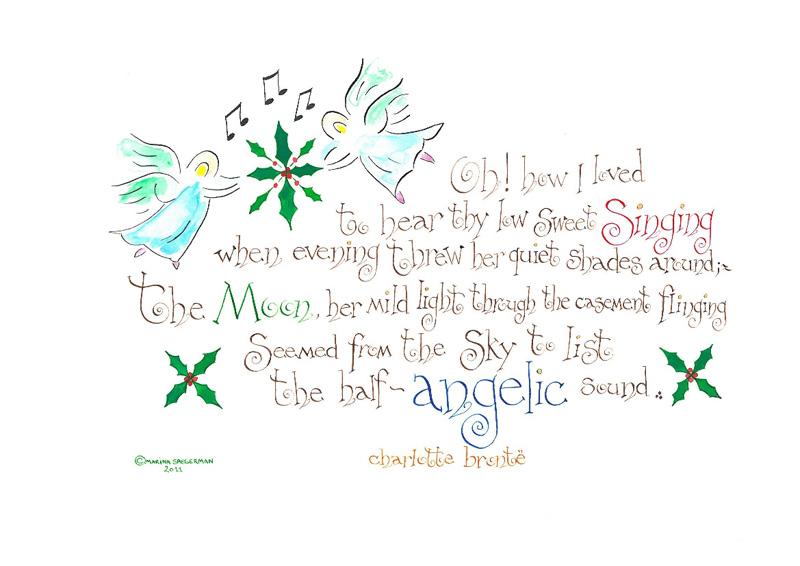 Oh! how I loved
to hear thy low sweet Singing
when evening threw her quiet shades around;~
the Moon, her mild light through the casement flinging
Seemed from the Sky to list
the half~angelic sound..
charlotte brontë
©MARINA SAEGERMAN
2011